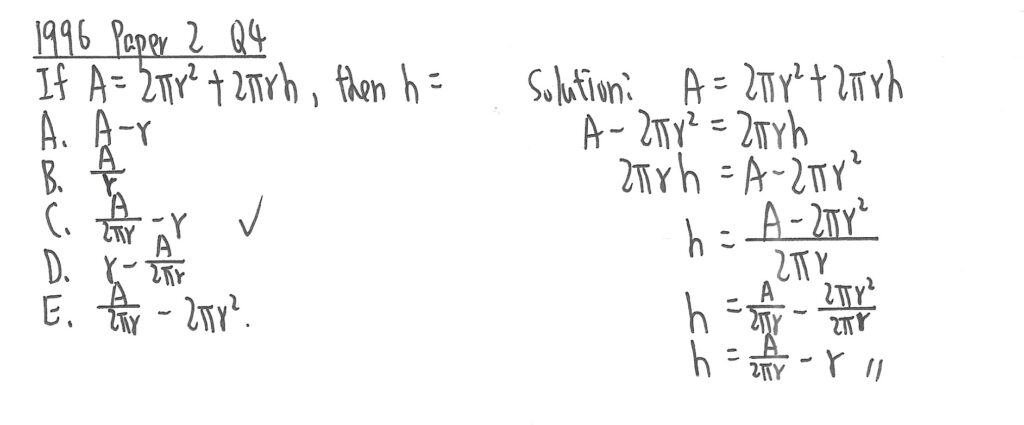 1996 Paper 2 Q4
If A = 2πr² + 2πrh, then h =
A. A-r
B. A/r
C. A/2πr - r ✓
D. r - A/2πr
E. A/2πr - 2πr².
Solution: A = 2πr² + 2πrh
A - 2πr² = 2πrh
2πrh = A - 2πr²
h = (A - 2πr²)/2πr
h = A/2πr - 2πr²/2πr
h = A/2πr - r //